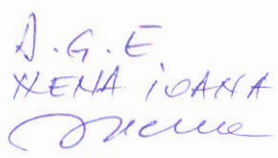 A.G.E
NENA IOANA